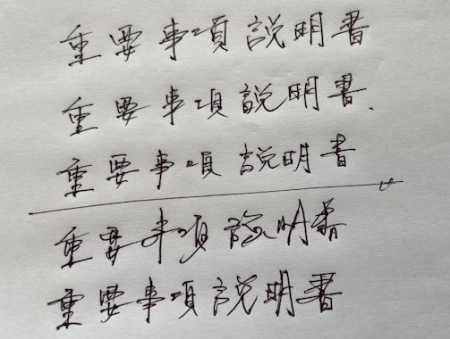 重要事項說明書
重要事項說明書
重要事項說明書
重要事項說明書
重要事項說明書